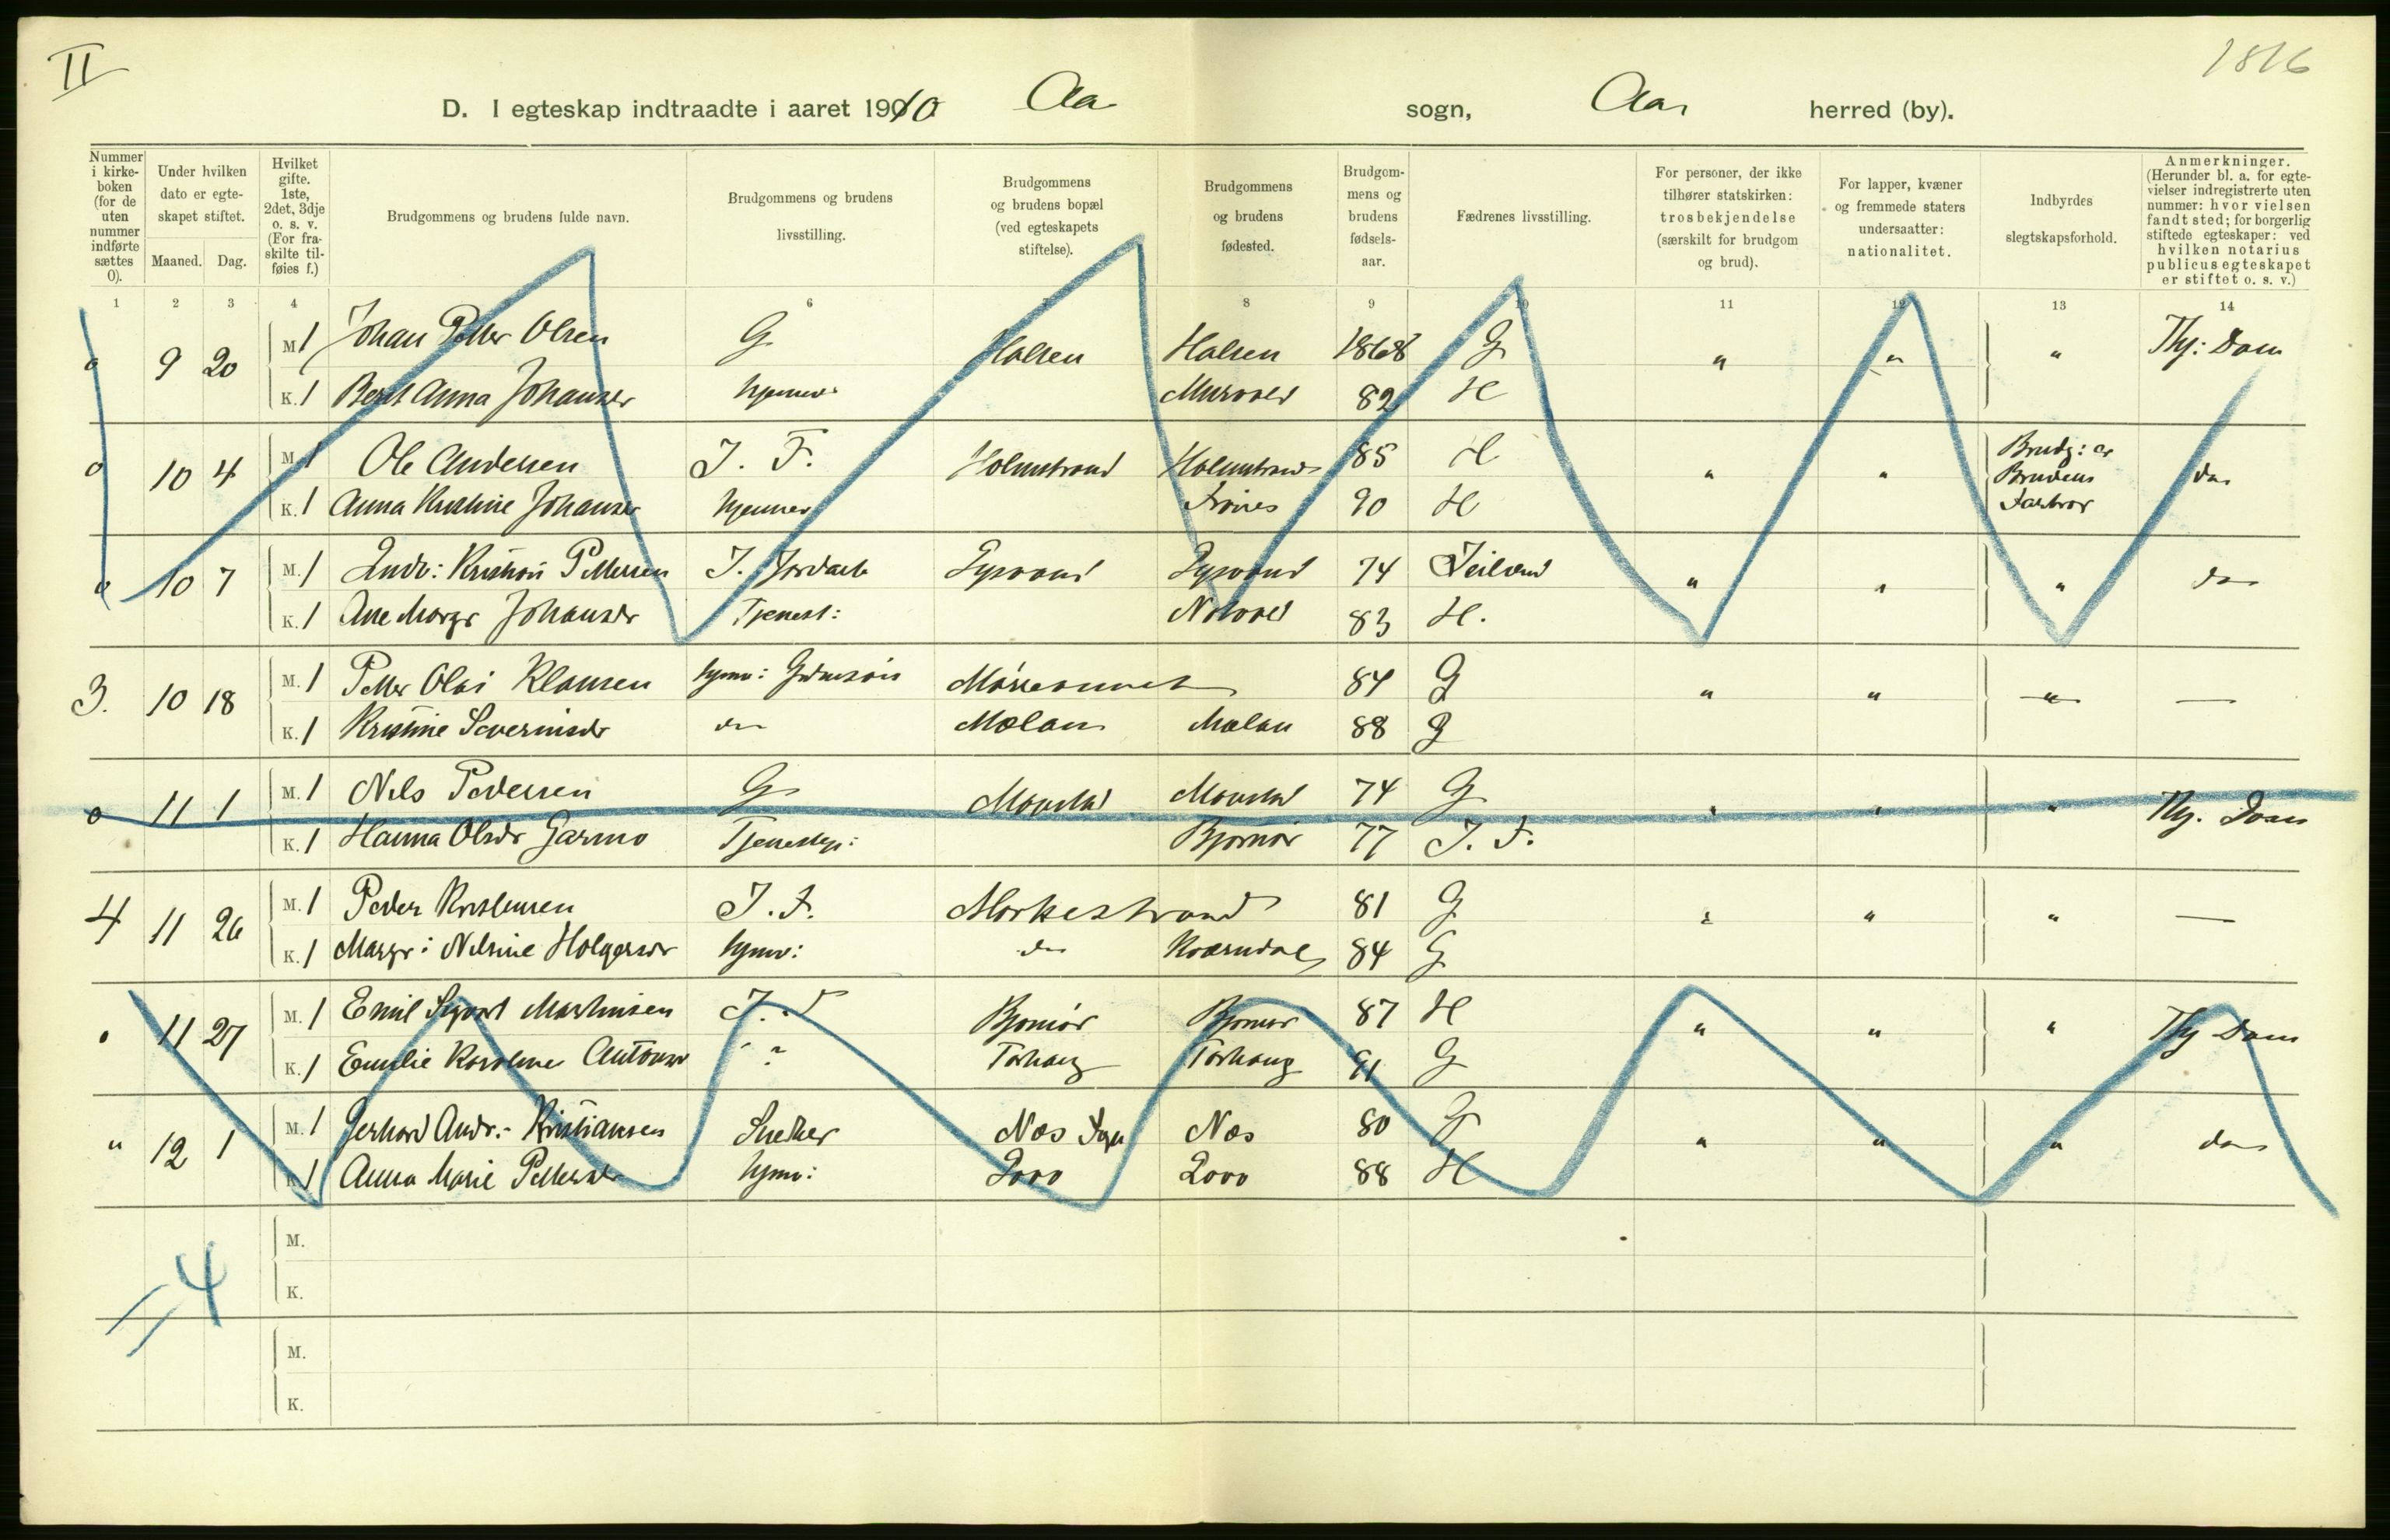 II
1816
D. I egteskap indtraadte i aaret 1910 Aa sogn, Aa herred (by).
Nummer i kirke-boken (for de uten nummer indførte sættes 0).
Under hvilken dato er egte-skapet stiftet.
Maaned. Dag.
Hvilket gifte. 1ste, 2det, 3dje o. s. v. (For fra-skilte til-føies f.)
Brudgommens og brudens fulde navn.
Brudgommens og brudens livsstilling.
Brudgommens og brudens bopæl (ved egteskapets stiftelse).
Brudgommens og brudens fødested.
Brudgom-mens og brudens fødsels-aar.
Fædrenes livsstilling.
For personer, der ikke tilhører statskirken: trosbekjendelse (særskilt for brudgom og brud).
For lapper, kvæner og fremmede staters undersaatter: nationalitet.
Indbyrdes slegtskapsforhold.
Anmerkninger. (Herunder bl. a. for egte-vielser indregistrerte uten nummer: hvor vielsen fandt sted; for borgerlig stiftede egteskaper: ved hvilken notarius publicus egteskapet er stiftet o. s. v.)
1 2 3 4 6 7 8 9 10 11 12 13 14
0 9 20 M 1 Johan Petter Olsen G Halsen Halsen 1868 G " " " Thj: Dom
K. 1 Berit Anna Johansdr hjemmev 82 H
0 10 4 M. 1 Ole Andersen I. F. Holmstrand Holmstrand 85 H " " Brudg: er Brudens Farbror do
K. 1 Anna Kristine Johansdr hjemmev 90 H
0 10 7 M. 1 Ludv: Kristian Pettersen I. Lysvand Lysvand 74 " " " do
K. 1 Ane Margr Johansdr Tjenest: 83 H.
3. 10 18 M. 1 Petter Olai Klausen hjmv: 84 G " " " —
K. 1 Kristine Severinsdr do Mælan Mælan 88 G
0 11 1 M. 1 Nils Pedersen G Monstad Monstad 74 G " " " Thj. Dom
K. 1 Hanna Olsdr Garmo Bjørnør 77 I. F.
4 11 26 M. 1 Peder Kristensen I. F. Morkestrand 81 G " " " —
K. 1 Margr: Nilsine Holgersdr hjmv: do Kværndal 84 G
0 11 27 M. 1 Emil Sigvart Martinsen I. F Bjørnør Bjørnør 87 H " " " Thj Dom
K. 1 Emilie Karoline Antonsdr Tørhaug Tørhaug 91 G
" 12 1 M. 1 Gerhard Andr.- Kristiansen Snekker Næs Sogn Næs 80 G " " " do
K 1 Anna Marie Pettersdr hjmv: 88 H
M.
K.
= 4
M.
K.